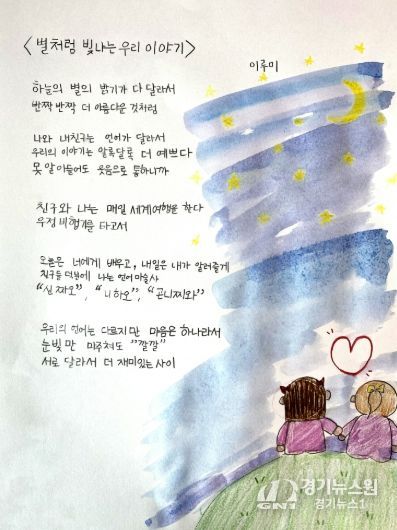 <별처럼 빛나는 우리 이야기>
이루미
하늘의 별의 밝기가 다 달라서
반짝 반짝 더 아름다운 것처럼
나와 내친구는 언어가 달라서
우리의 이야기는 알록달록 더 예쁘다
못 알아들어도 웃음으로 통하니까
친구와 나는 매일 세계여행을 한다
우정 비행기를 타고서
오늘은 너에게 배우고, 내일은 내가 알려줄게
친구들 덕분에 나는 언어마술사
"신짜오", "니하오", "곤니찌와"
우리의 언어는 다르지만 마음은 하나라서
눈빛만 마주쳐도 "깔깔"
서로 달라서 더 재미있는 사이
GN1 경기뉴스원
경기뉴스1